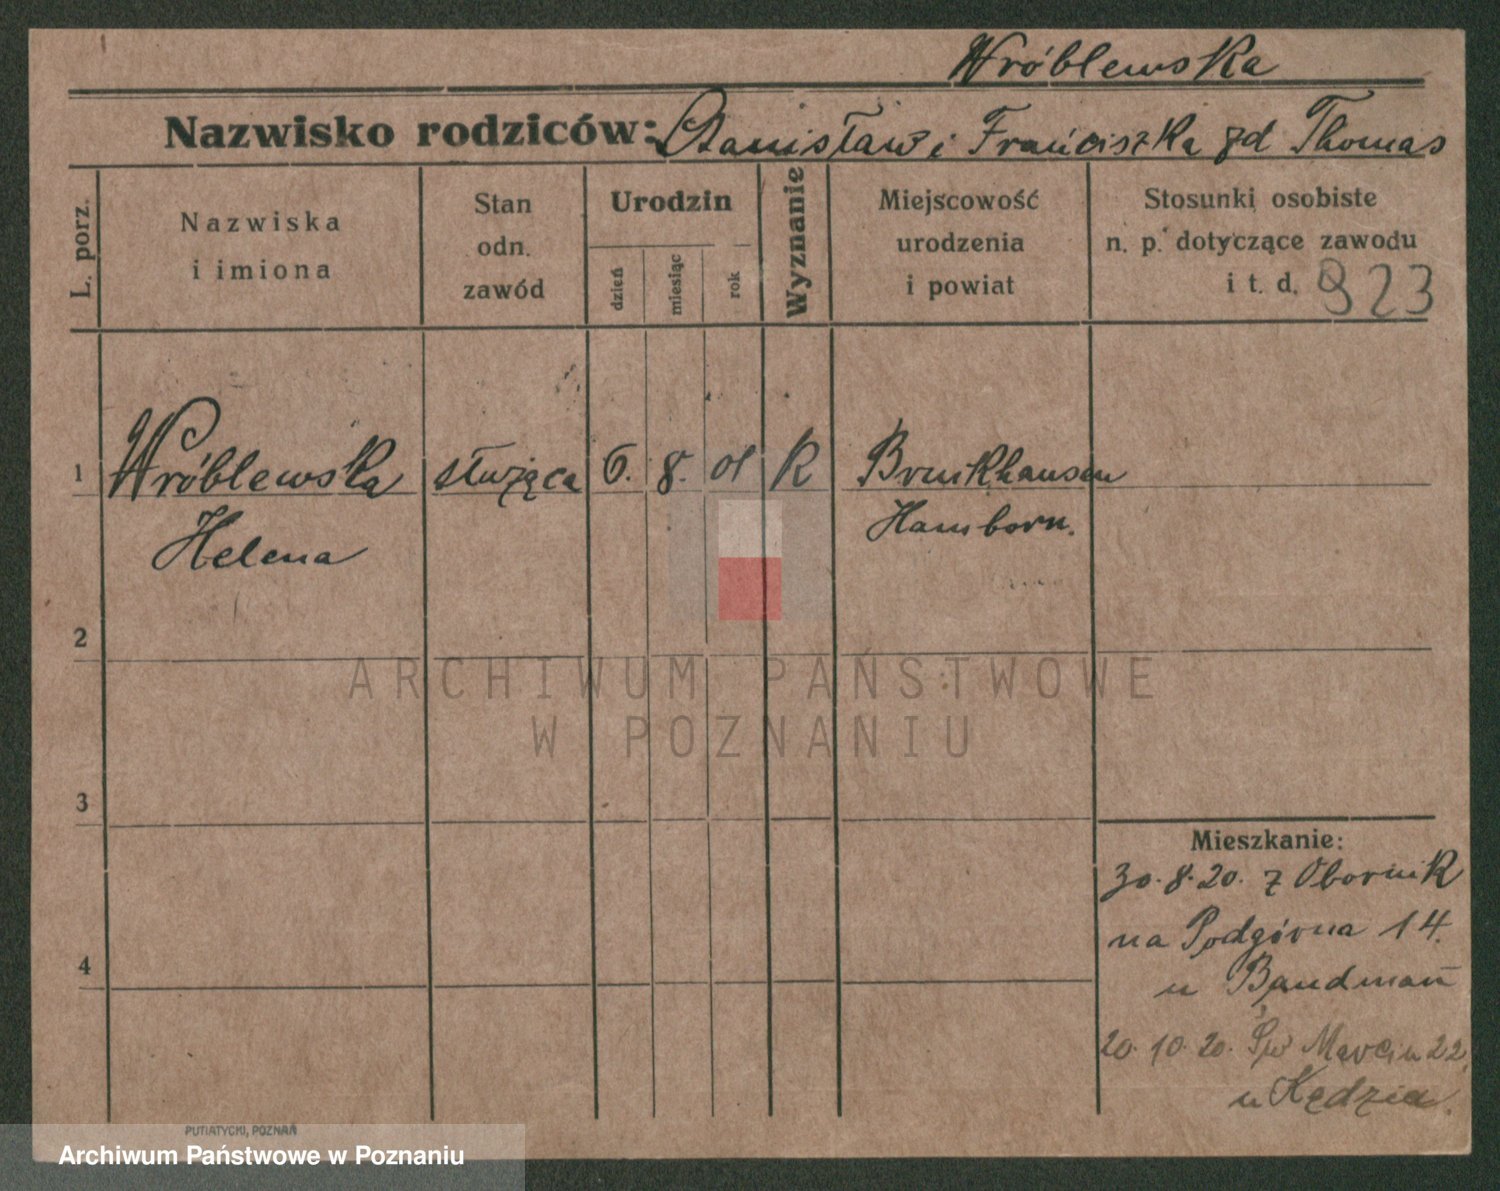 Wróblewska
Nazwisko rodziców: Stanisław i Franciszka zd Thomas
L. porz.
Nazwiska
i imiona
Stan
odn.
zawód
Urodzin
dzień
miesiąc
rok
Wyznanie
Miejscowość
urodzenia
i powiat
Stosunki osobiste
n. p. dotyczące zawodu
i t. d.
923
1 Wróblewska służąca 6. 8. 01 K Bruckhausen
Helena Hamborn.
2
3
4
Mieszkanie:
30.8.20. z Obornik
na Podgórna 14.
u Baudmań
20.10.20. Św Marcin 22.
u Kędzia.
PUTIATYCKI, POZNAŃ
ARCHIWUM PAŃSTWOWE
W POZNANIU
Archiwum Państwowe w Poznaniu